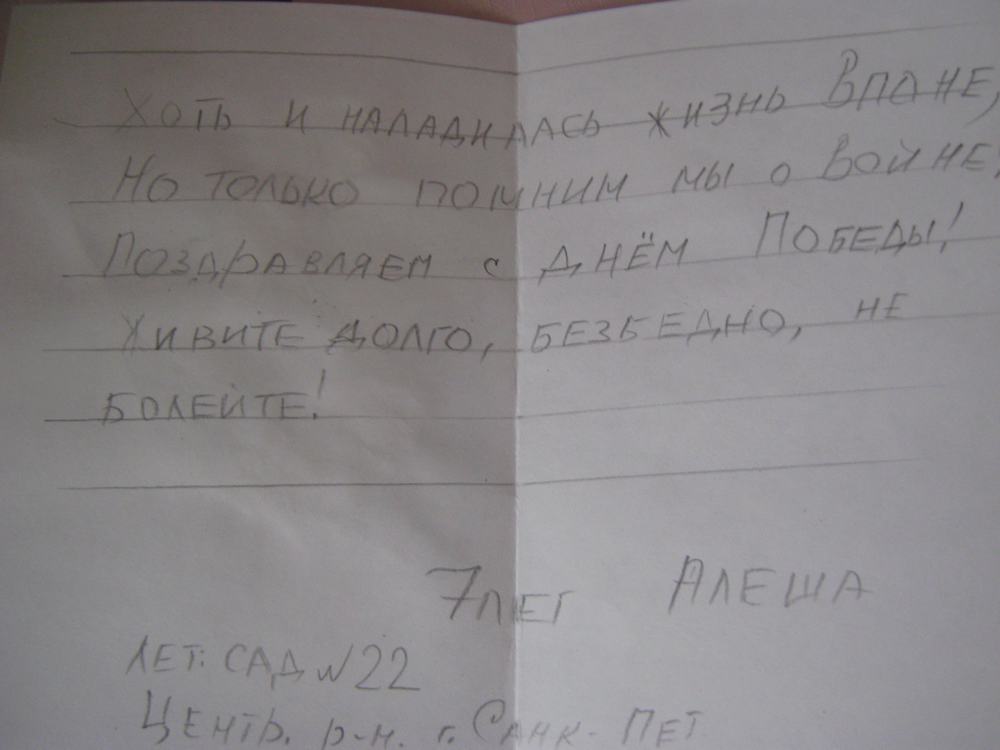 Хоть и наладилась жизнь вполне,
Но только помним мы о войне!
Поздравляем с днём Победы!
Живите долго, безбедно, не
болейте!
7 лет Алеша
Дет. сад №22
Центр. р-н. г. Санк-Пет